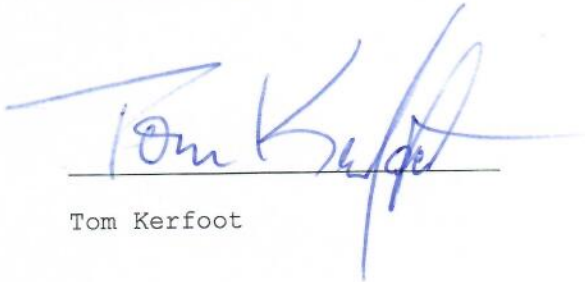 Tom Kerfoot
Tom Kerfoot